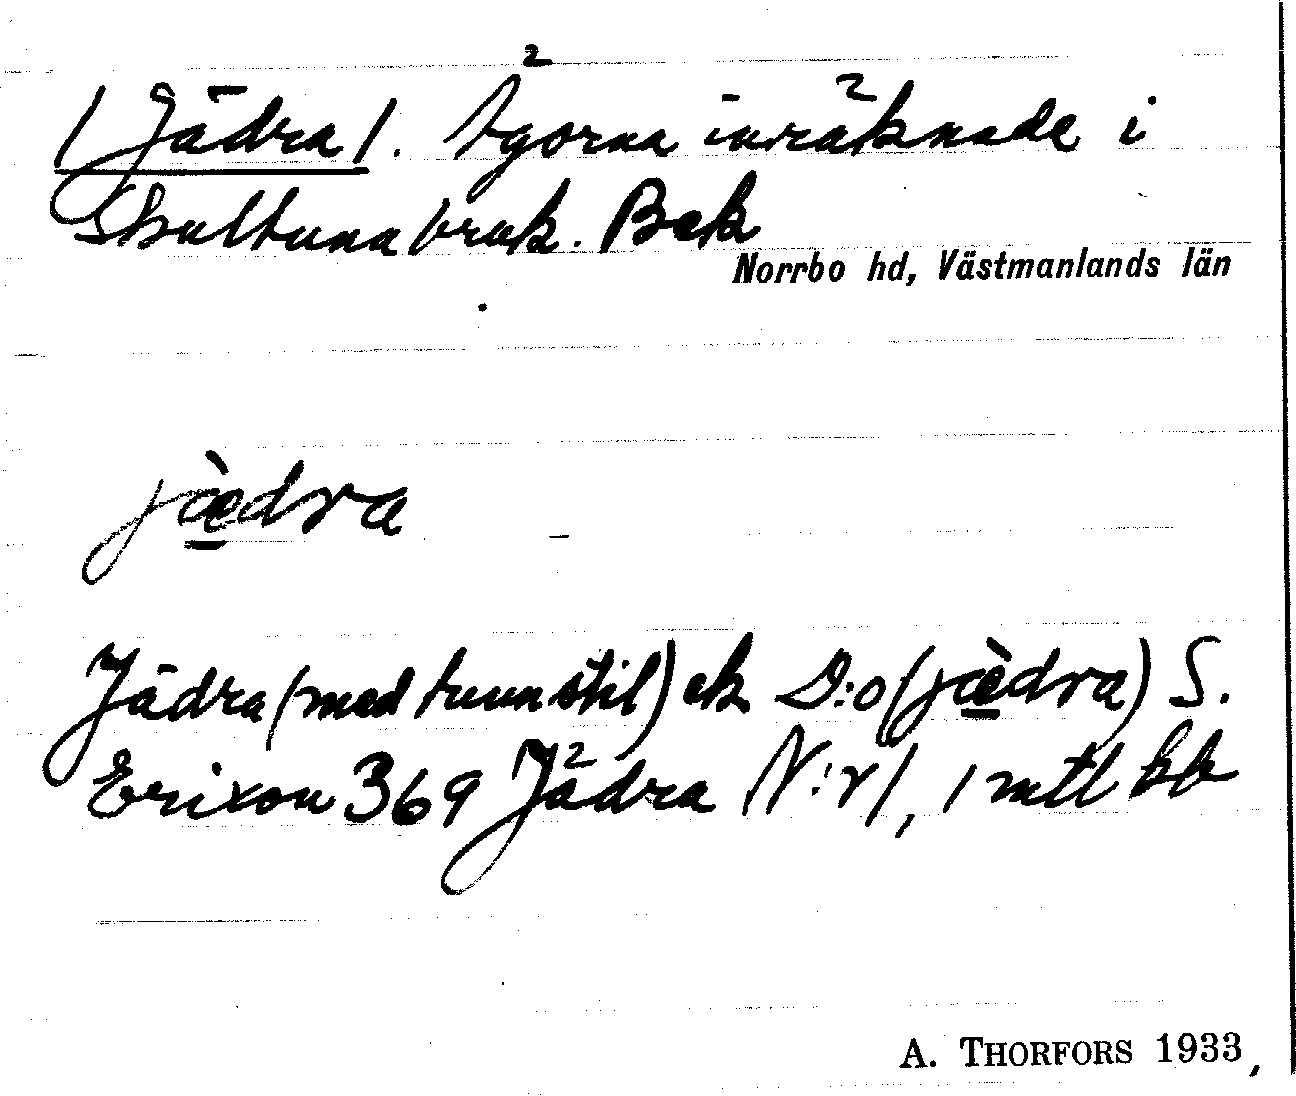 /Jädra/. Ägorna inräknade i
Skultuna bruk. Bek
Norrbo hd, Västmanlands län
jàedra
Jädra (med tunn stil) ek D:o (jàedra) S.
Erixon 369 Jädra N:r 1, 1 mtl kk
A. THORFORS 1933,